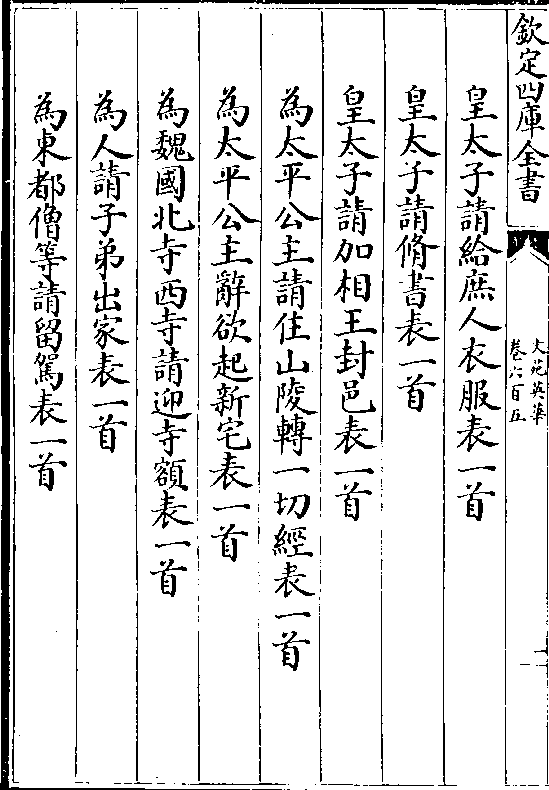 欽定四庫全書
文苑英華
卷六百五
皇太子請給庶人衣服表一首
皇太子請脩書表一首
皇太子請加相王封邑表一首
為太平公主請住山陵轉一切經表一首
為太平公主辭欲起新宅表一首
為魏國北寺西寺請迎寺額表一首
為人請子弟出家表一首
為東都僧等請留駕表一首